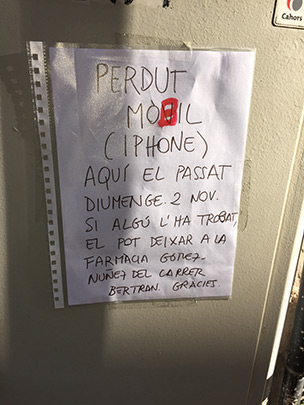 Cahors
PERDUT
MÒBIL
(IPHONE)
AQUÍ EL PASSAT
DIUMENGE. 2 NOV.
SI ALGÚ L'HA TROBAT,
EL POT DEIXAR A LA
FARMACIA GOMEZ
NUÑEZ DEL CARRER
BERTRAN. GRACIES.